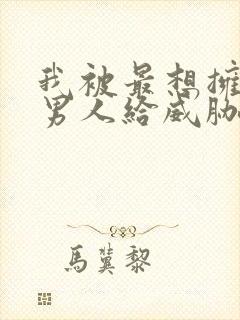 我被最想擁
男人給威脅
馬冀黎